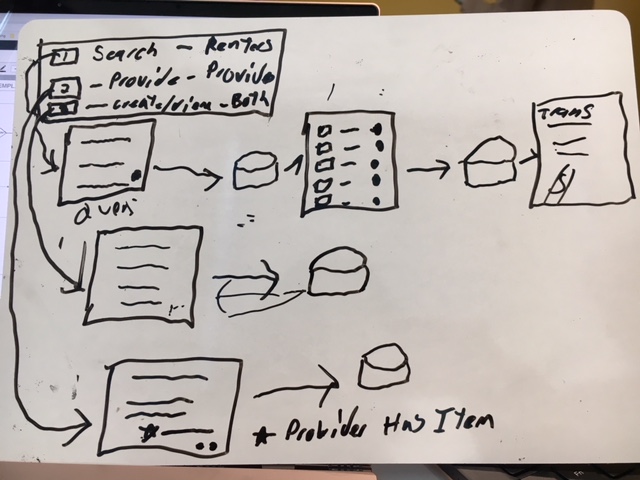 1 Search - Rentees
2 - Provide - Provide
3 - create/view - Both
Query
Trans
$
★ Provider Has Item